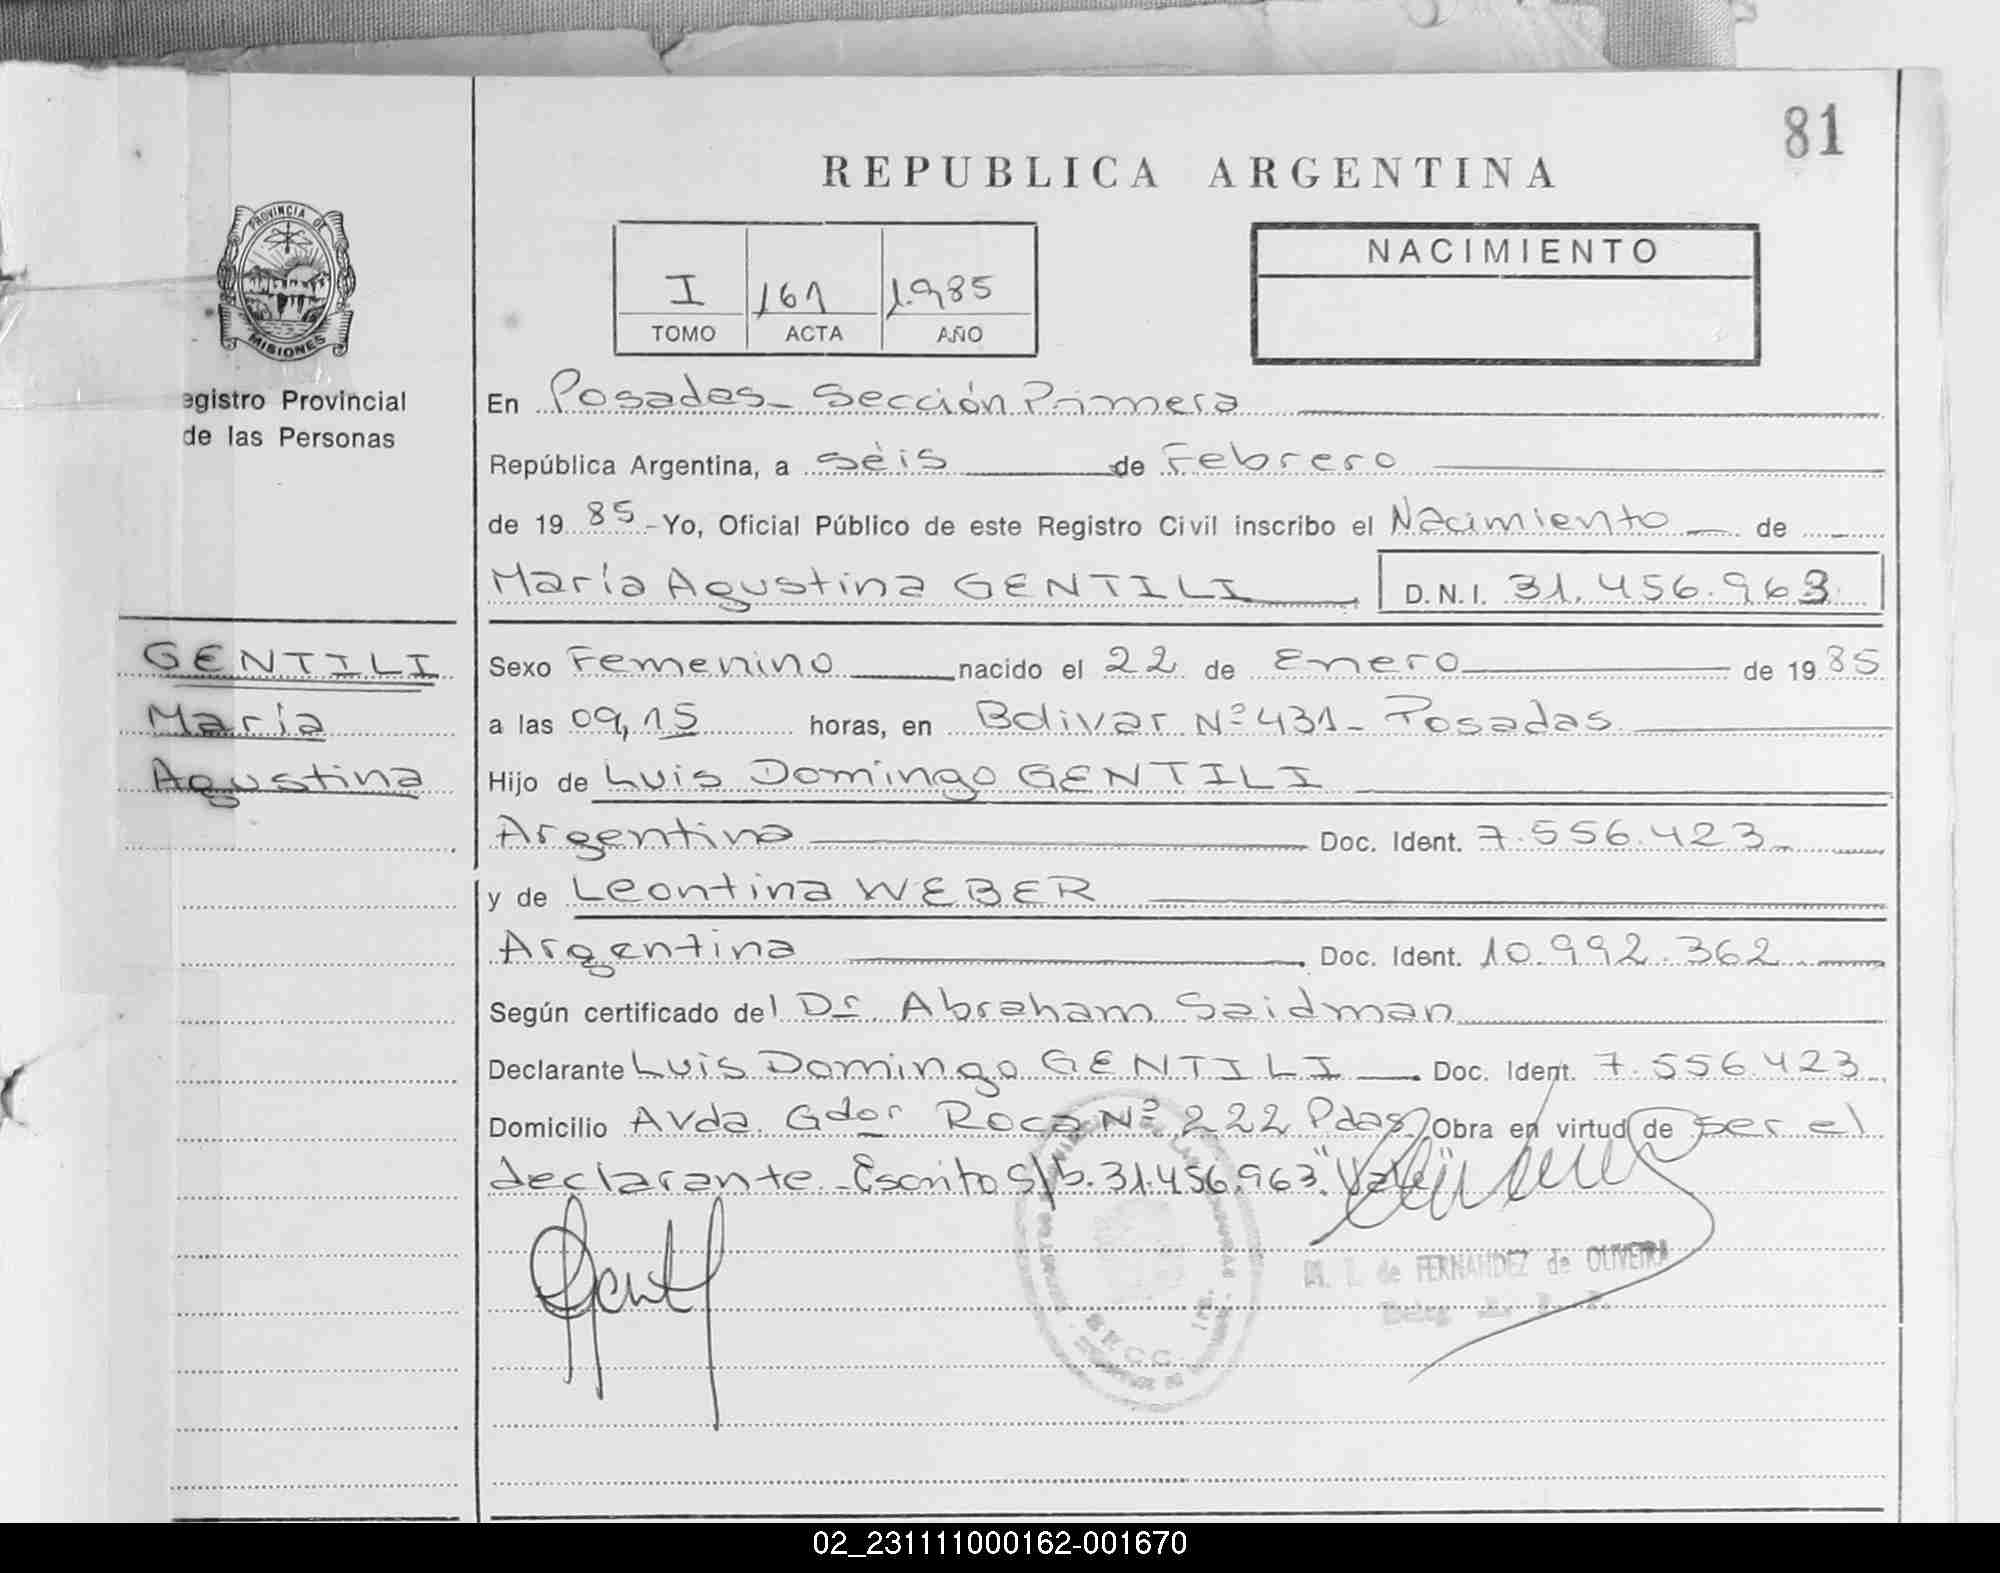 81
REPUBLICA ARGENTINA
PROVINCIA DE
MISIONES
I 161 1.985
TOMO ACTA AÑO
NACIMIENTO
egistro Provincial
de las Personas
En Posadas - Sección Primera
República Argentina, a Séis de Febrero
de 19 85 - Yo, Oficial Público de este Registro Civil inscribo el Nacimiento de
María Agustina GENTILI D.N.I. 31.456.963
GENTILI
María
Agustina
Sexo Femenino nacido el 22 de Enero de 19 85
a las 09,15 horas, en Bolivar Nº 431 - Posadas
Hijo de Luis Domingo GENTILI
Argentino Doc. Ident. 7.556.423
y de Leontina WEBER
Argentina Doc. Ident. 10.992.362
Según certificado del Dr. Abraham Saidman
Declarante Luis Domingo GENTILI Doc. Ident. 7.556.423
Domicilio Avda. Gdor Roca Nº 222 Pdas. Obra en virtud de ser el
declarante - Escrito s/b. 31.456.963 "Vale"
M. L. de FERNANDEZ de OLIVEIRA
02_231111000162-001670